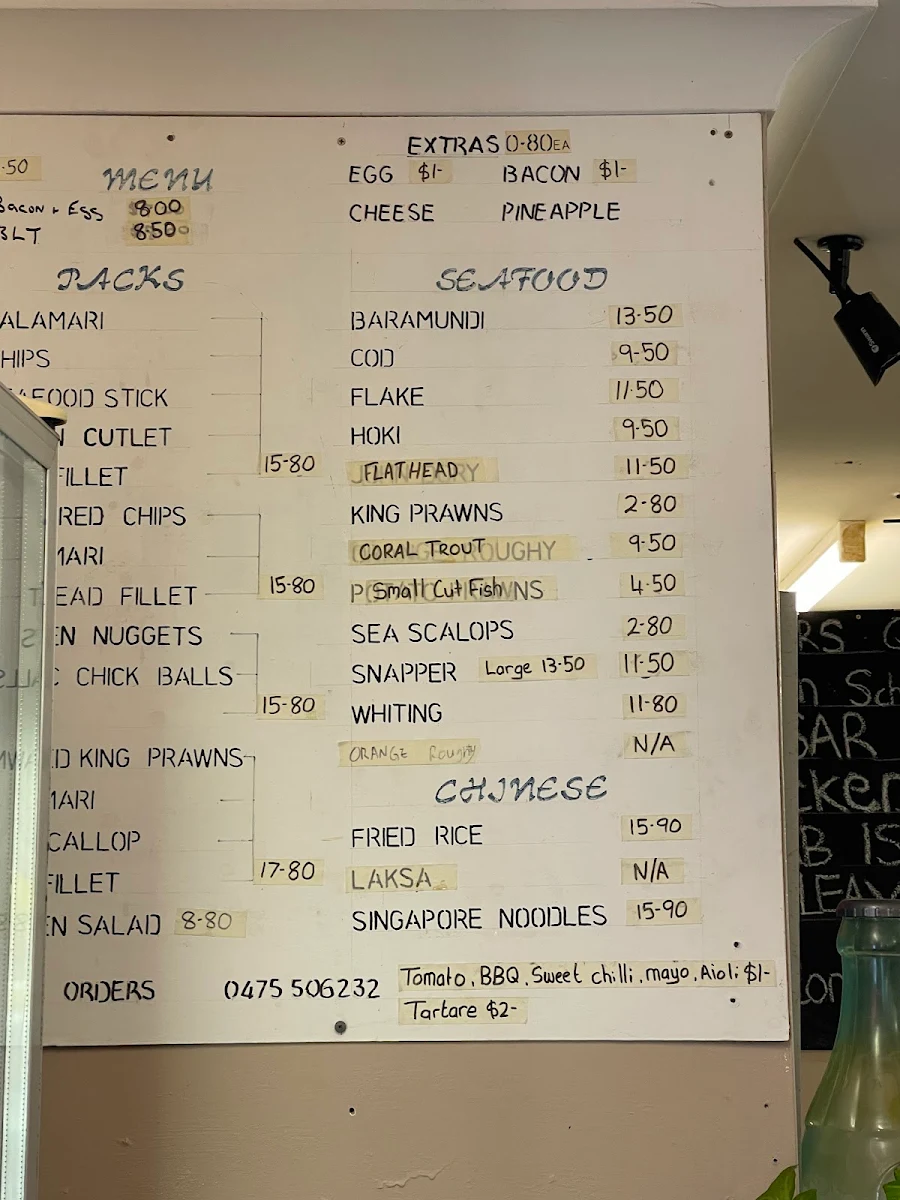 .50
MENU
Bacon + Egg 8.00
BLT 8.50
PACKS
ALAMARI
HIPS
FOOD STICK
N CUTLET
FILLET 15-80
RED CHIPS
MARI
EAD FILLET 15-80
EN NUGGETS
C CHICK BALLS
15-80
D KING PRAWNS
MARI
CALLOP
FILLET 17-80
EN SALAD 8-80
EXTRAS 0-80 EA
EGG $1- BACON $1-
CHEESE PINEAPPLE
SEAFOOD
BARAMUNDI 13-50
COD 9-50
FLAKE 11-50
HOKI 9-50
FLATHEAD 11-50
KING PRAWNS 2-80
CORAL TROUT 9-50
Small Cut Fish 4-50
SEA SCALOPS 2-80
SNAPPER Large 13-50 11-50
WHITING 11-80
ORANGE Roughy N/A
CHINESE
FRIED RICE 15-90
LAKSA N/A
SINGAPORE NOODLES 15-90
ORDERS 0475 506232
Tomato, BBQ, Sweet chilli, mayo, Aioli $1-
Tartare $2-
RS
n Sch
SAR
cken
B IS
LEAV
Lon